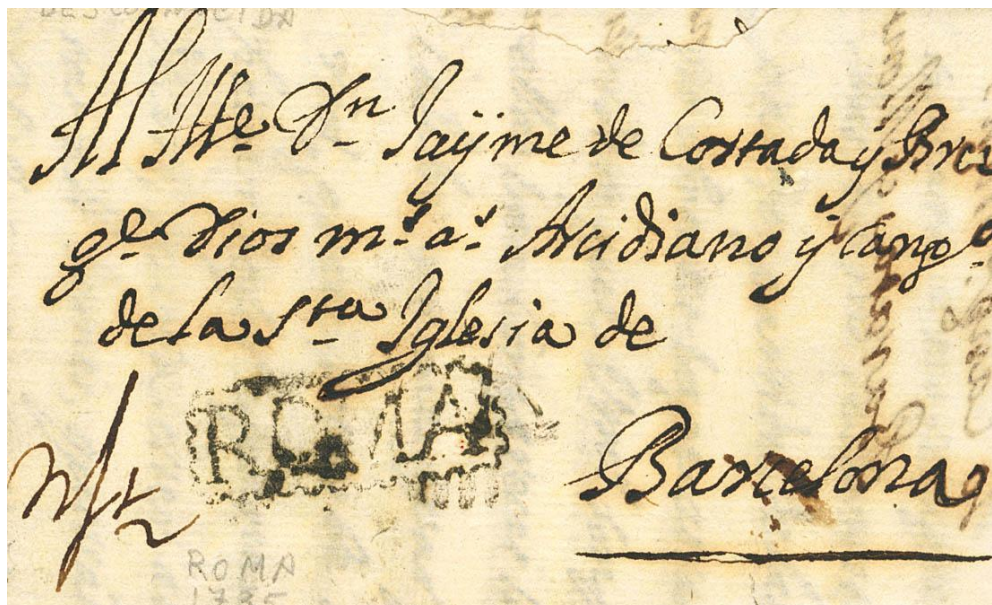 DESCONOCIDA
Al Ille Dn Jayme de Cortada y
ge. Dios ms. as. Arcidiano y Cango.
de la Sta Iglesia de
ROMA
Barcelona
ROMA